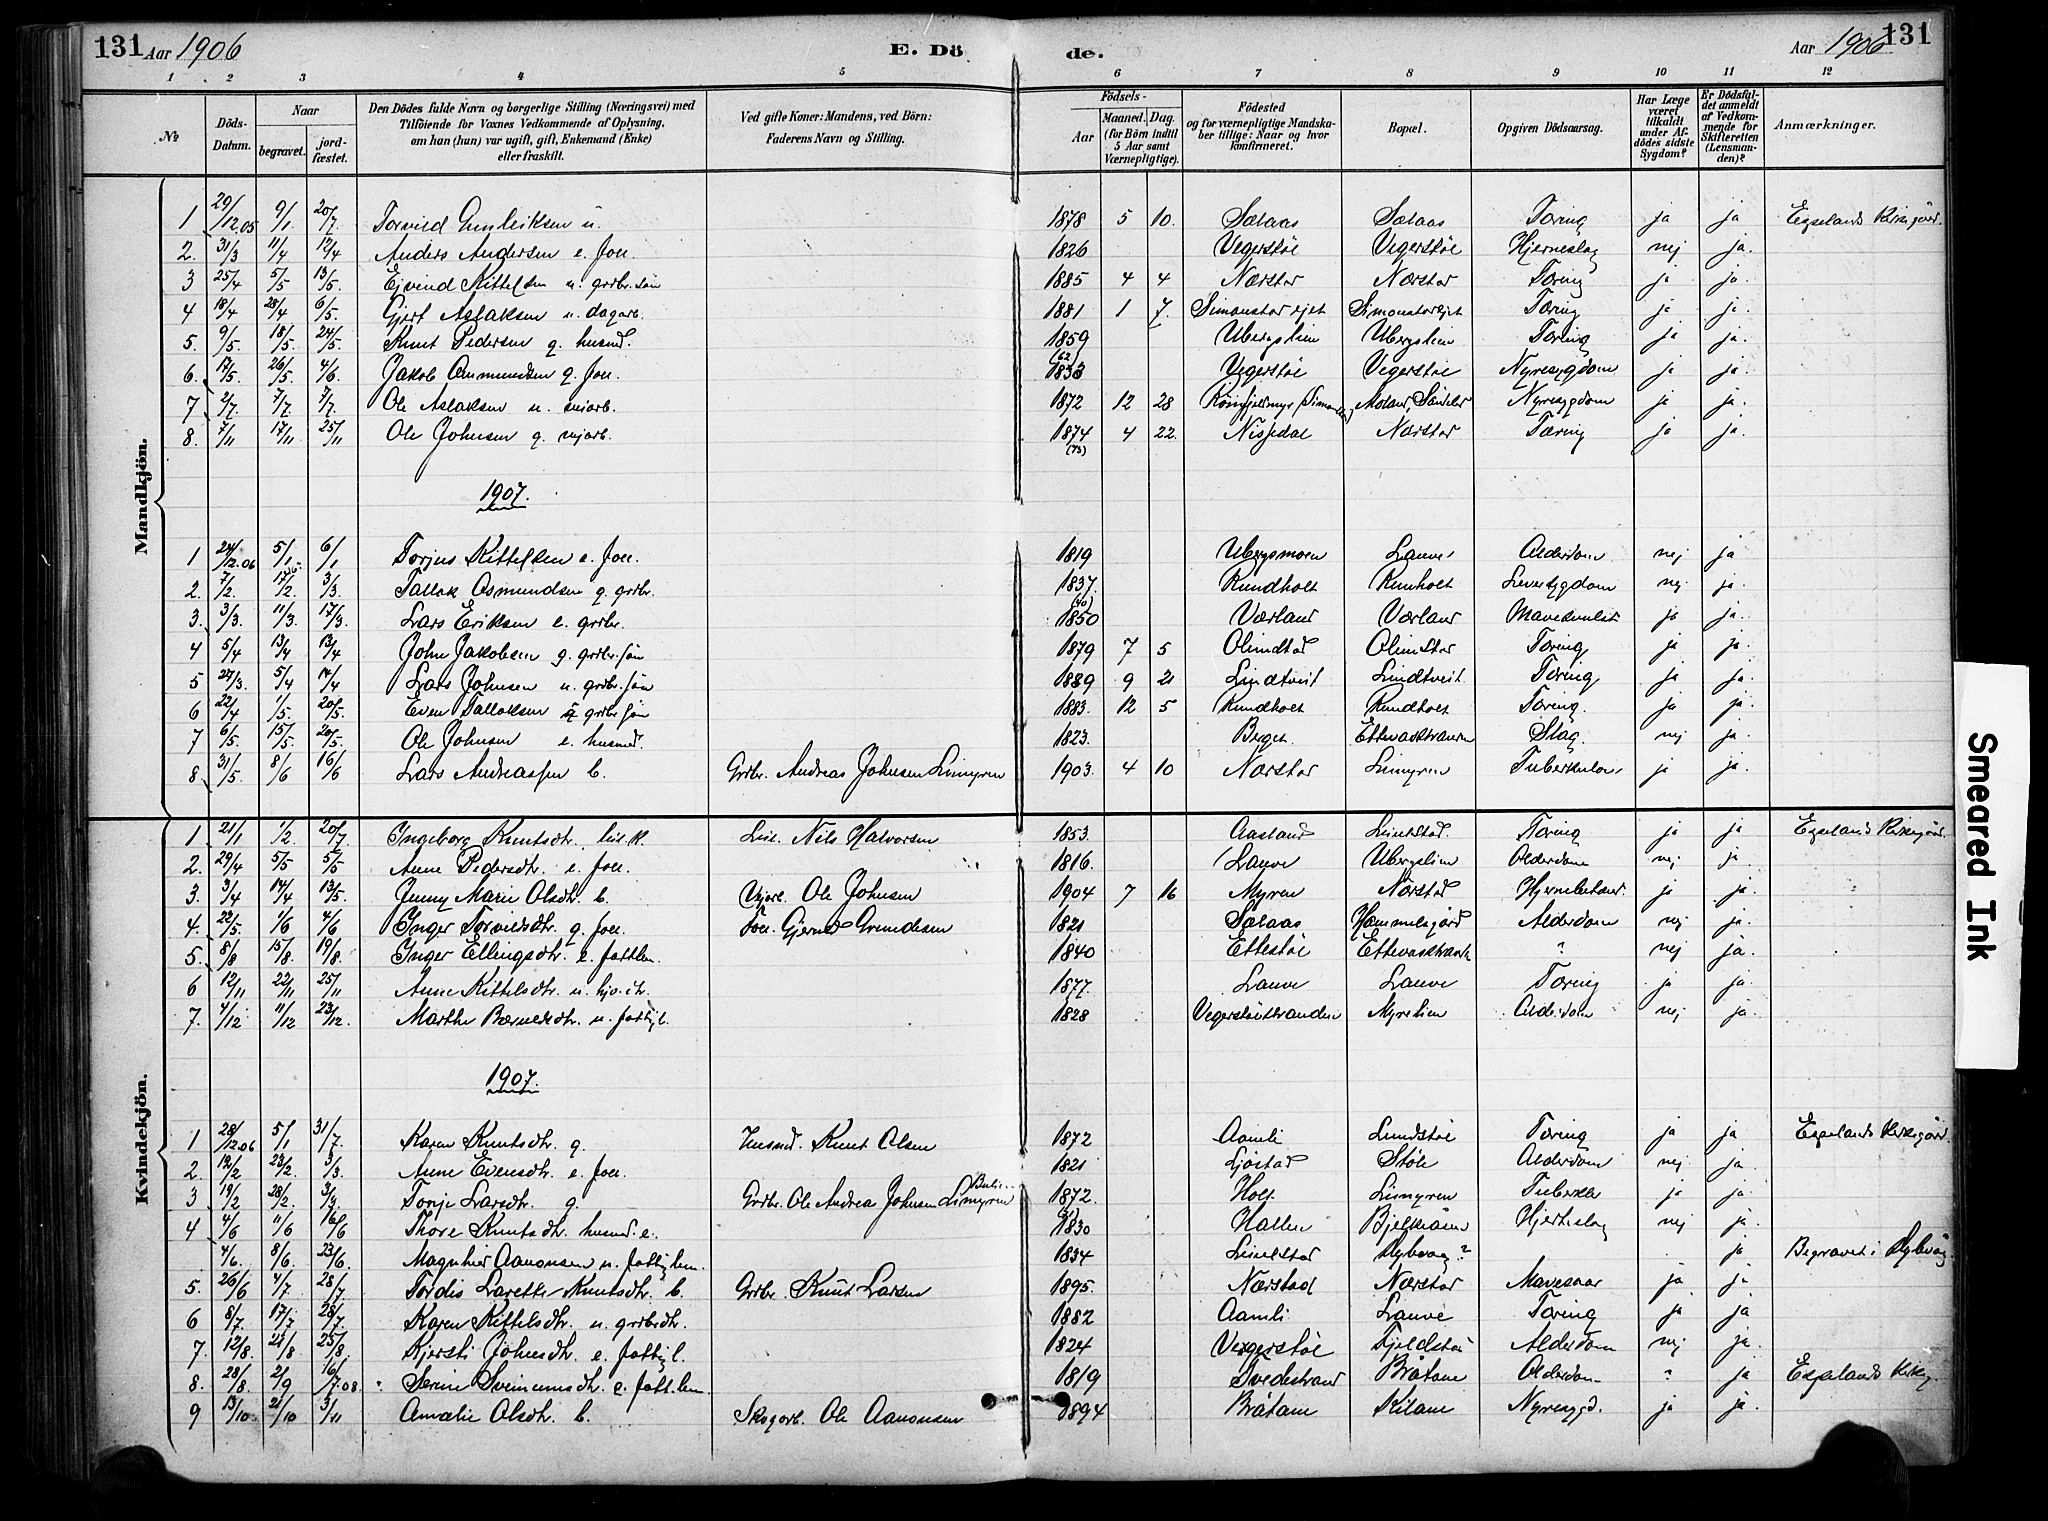 131 Aar 1906 E. Dö de. Aar 1906 131
1 2 3 4 5 6 7 8 9 10 11 12
№ Döds-Datum. Naar begravet. jordfæstet. Den Dödes fulde Navn og borgerlige Stilling (Næringsvei) med Tilföiende for Voxnes Vedkommende af Oplysning, om han (hun) var ugift, gift, Enkemand (Enke) eller fraskilt. Ved gifte Koner: Mandens, ved Börn: Faderens Navn og Stilling. Födsels- Aar Maaned. Dag. (for Börn indtil 5 Aar samt Værnepligtige). Födested og for værnepligtige Mandskaber tillige: Naar og hvor konfirmeret. Bopæl. Opgiven Dödsaarsag. Har Læge været tilkaldt under Afdödes sidste Sygdom? Er Dödsfaldet anmeldt af Vedkommende for Skifteretten (Lensmanden)? Anmærkninger.
Mandkjön.
1 29/12.05 9/1 20/7. Torvild Gunleiksen u. 1878 5 10. Sælaas Sælaas Tæring ja ja Espelands Kirkegård.
2. 31/3 11/4 12/4 Anders Andersen e. foer. 1826 Vegerstøl Vegerstøl Hjerneslag nej ja.
3 25/4 5/5 13/5. Ejvind Kittelsen u. grdbr. søn 1885 4 4 Nærstad Nærstad Tæring ja ja.
4 18/4 28/4 6/5. Gjert Aslaksen u. dagarb. 1881 1 7. Simonstad ejet Simonstad ejet Tæring ja ja.
5. 9/5 18/5. 24/5. Knut Pedersen g. husmd. 1859 Ubergslien Ubergslien Tæring ja ja.
6. 17/5. 26/5. 4/6. Jakob Ommundsen g. foer. (62) 1833 Vegerstøl Vegerstøl Nyresygdom ja ja.
7 2/7. 7/7. 7/7. Ole Aslaksen u. vejarb. 1872 12 28 Nyresygdom ja ja.
8. 7/11 17/11. 25/11 Ole Johnsen g. vejarb. 1874 (73) 4 22. Nissedal Nærstad Tæring ja ja.
1907.
1 24/12.06 5/1 6/1 Torjus Kittelsen e. foer. 1819 Ubergsmoen Lauve Alderdom nej ja
2. 7/2. 17/2. 3/3. Tallak Osmundsen g. grdbr. 1837. Rundholt Rundholt Leversygdom nej ja.
3. 3/3. 11/3. 17/3. Lars Eriksen e. grdbr. (40) 1850 Værland Værland ja ja.
4 5/4 13/4 13/4 John Jakobsen g. grdbr. søn 1879 7 5 Olimstad Olimstad Tæring ja ja.
5 27/3. 5/4 14/4 Lars Johnsen u. grdbr. søn 1889 9 21 Lindtveit Lindtveit Tæring ja ja.
6 22/4 1/5. 20/5. Even Tallaksen g grdbr. søn 1883. 12 5 Rundholt Rundholt Tæring. ja ja.
7 6/5. 15/5. 20/5. Ole Johnsen e. husmd. 1823. Berget. Slag. nej ja.
8 31/5. 8/6 16/6 Lars Andreassen b. Grdbr. Andreas Johnsen Limyren 1903. 4 10 Nærstad Limyren ja ja.
Kvindekjön.
1 21/1 1/2. 20/7 Ingeborg Knutsdtr. Nils Halvorsen 1853. Aasland Tæring ja ja Espelands Kirkegård.
2. 29/4 5/5 5/5 Anne Pedersdtr. e. foer. 1816. Lauve Ubergslien Alderdom nej ja.
3. 3/4 14/4 13/5. Jenny Marie Olsdtr. b. Vejarb. Ole Johnsen 1904 7 16 Myren Nærstad ja ja.
4. 22/5. 1/6 4/6 Inger Torvildsdtr. g. foer. Foer. Gjermd. 1821 Sælaas Hammelsgård Alderdom nej ja.
5. 8/8 15/8. 19/8. Inger Ellingsdtr. e. fattlem. 1840 Ettestøl " nej ja.
6 12/11 22/11 25/11 Anne Kittelsdtr. u. 1877. Lauve Lauve Tæring ja ja.
7. 4/12 11/12 23/12. Marthe u. fattigl. 1828 Vegerstølstranden Myrelien Alderdom nej ja.
1907.
1 28/12.06 5/1 31/7. Karen Knutsdtr. g. Husmd. Knut Olsen 1872 Aamli Lundstøl Tæring ja ja Espelands Kirkegård.
2. 12/2 23/2. 3/3. Anne Evensdtr. e. foer. 1821 Ljøstad Støle Alderdom nej ja.
3 19/2 28/2. 3/3. Torje Larsdtr. g. Grdbr. Ole Andreas Johnsen Limyren 1872. Holt Limyren ja ja.
4 4/6 11/6 16/6 Thore Knutsdtr. husmd. e. 1830 Hjerteslag nej ja.
4/6. 8/6. 23/6. Aanonsen u. fattiglem. 1834 Dybvåg? ja Begravet i Dybvåg
5. 26/6 4/7 28/7 Tordis Larette Knutsdtr. b. Grdbr. Knut Larsen 1895. Nærstad Nærstad ja ja
6 8/7. 17/7 28/7. Karen Kittelsdtr. u. grdbrdtr. 1882 Aamli Lauve Tæring ja ja
7. 12/8. 21/8 25/8. Kjersti Johnsdtr. e. fattigl. 1824 Vegerstøl Fjeldstøl Alderdom nej ja.
8. 28/8. 2/9 16/7.08. Serine e. fatt.lem. 1819 Tvedestrand Bråtane Alderdom " ja Espelands Kirkeg.
9 13/10 21/10 3/11 Amalie Olsdtr. b. Skogarb. Ole Aanonsen 1894 Bråtane Kilane Nyresygd. ja ja.
Smeared Ink